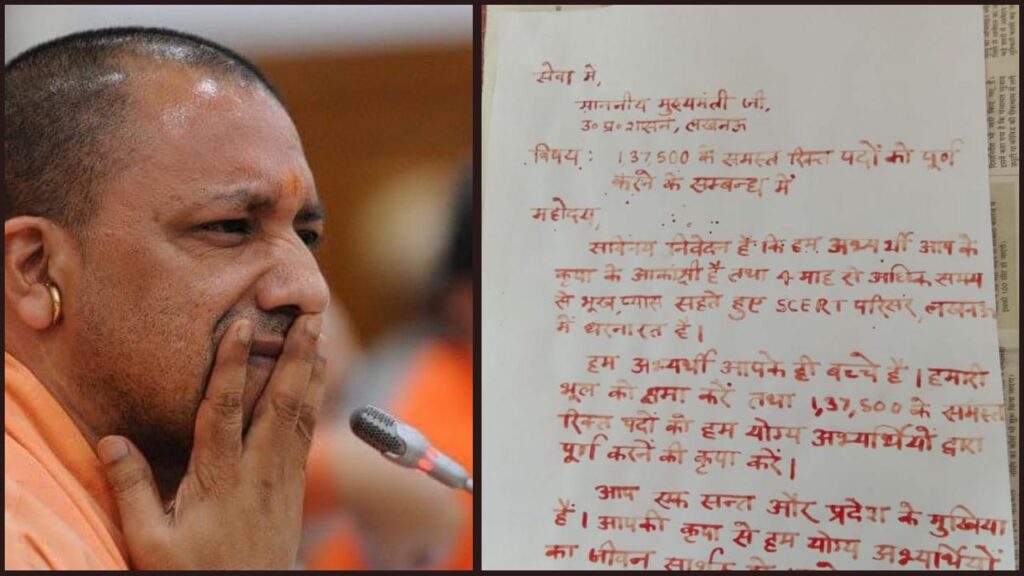 सेवा में,
माननीय मुख्यमंत्री जी,
उ० प्र० शासन, लखनऊ
विषय : 137,500 के समस्त रिक्त पदों को पूर्ण
करने के सम्बन्ध में
महोदय,
सविनय निवेदन है कि हम अभ्यर्थी आप के
कृपा के आकांक्षी है तथा 4 माह से अधिक समय
से भूख प्यास सहते हुए SCERT परिसर, लखनऊ
में धरनारत है।
हम अभ्यर्थी आपके ही बच्चे हैं। हमारी
भूल को क्षमा करें तथा 1,37,500 के समस्त
रिक्त पदों को हम योग्य अभ्यर्थियों द्वारा
पूर्ण करनें की कृपा करें।
आप एक सन्त और प्रदेश के मुखिया
हैं। आपकी कृपा से हम योग्य अभ्यर्थियों
का जीवन सार्थक